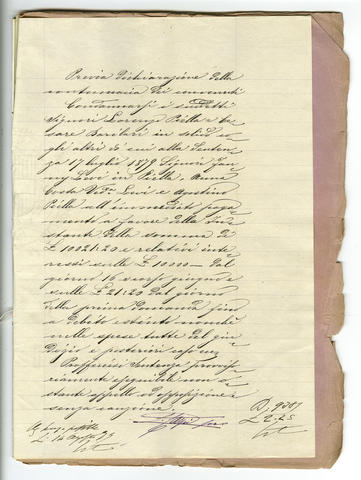 Previa dichiarazione della
contumacia dei convenuti
Condannarsi i suddetti
Signori Lorenzo Piella e Ce
sare Barilari in solido co
gli altri di cui alla Senten
za 17 luglio 1879 Signori
Levi in Piella e Anna
Costa Ved. Levi e Agostino
Piella all'immediato paga
mento a favore della In
stante della somma di
£ 10021:20 e relativi inte
ressi sulle £ 10000 — dal
giorno 16 scorso giugno e
sulle £ 21:20 dal giorno
della prima domanda fino
a debito estinto nonchè
nelle spese tutte del giu
dizio e posteriori
Profferirsi Sentenza provviso
riamente eseguibile non o
stante appello od opposizione e
senza cauzione
£ 2.25